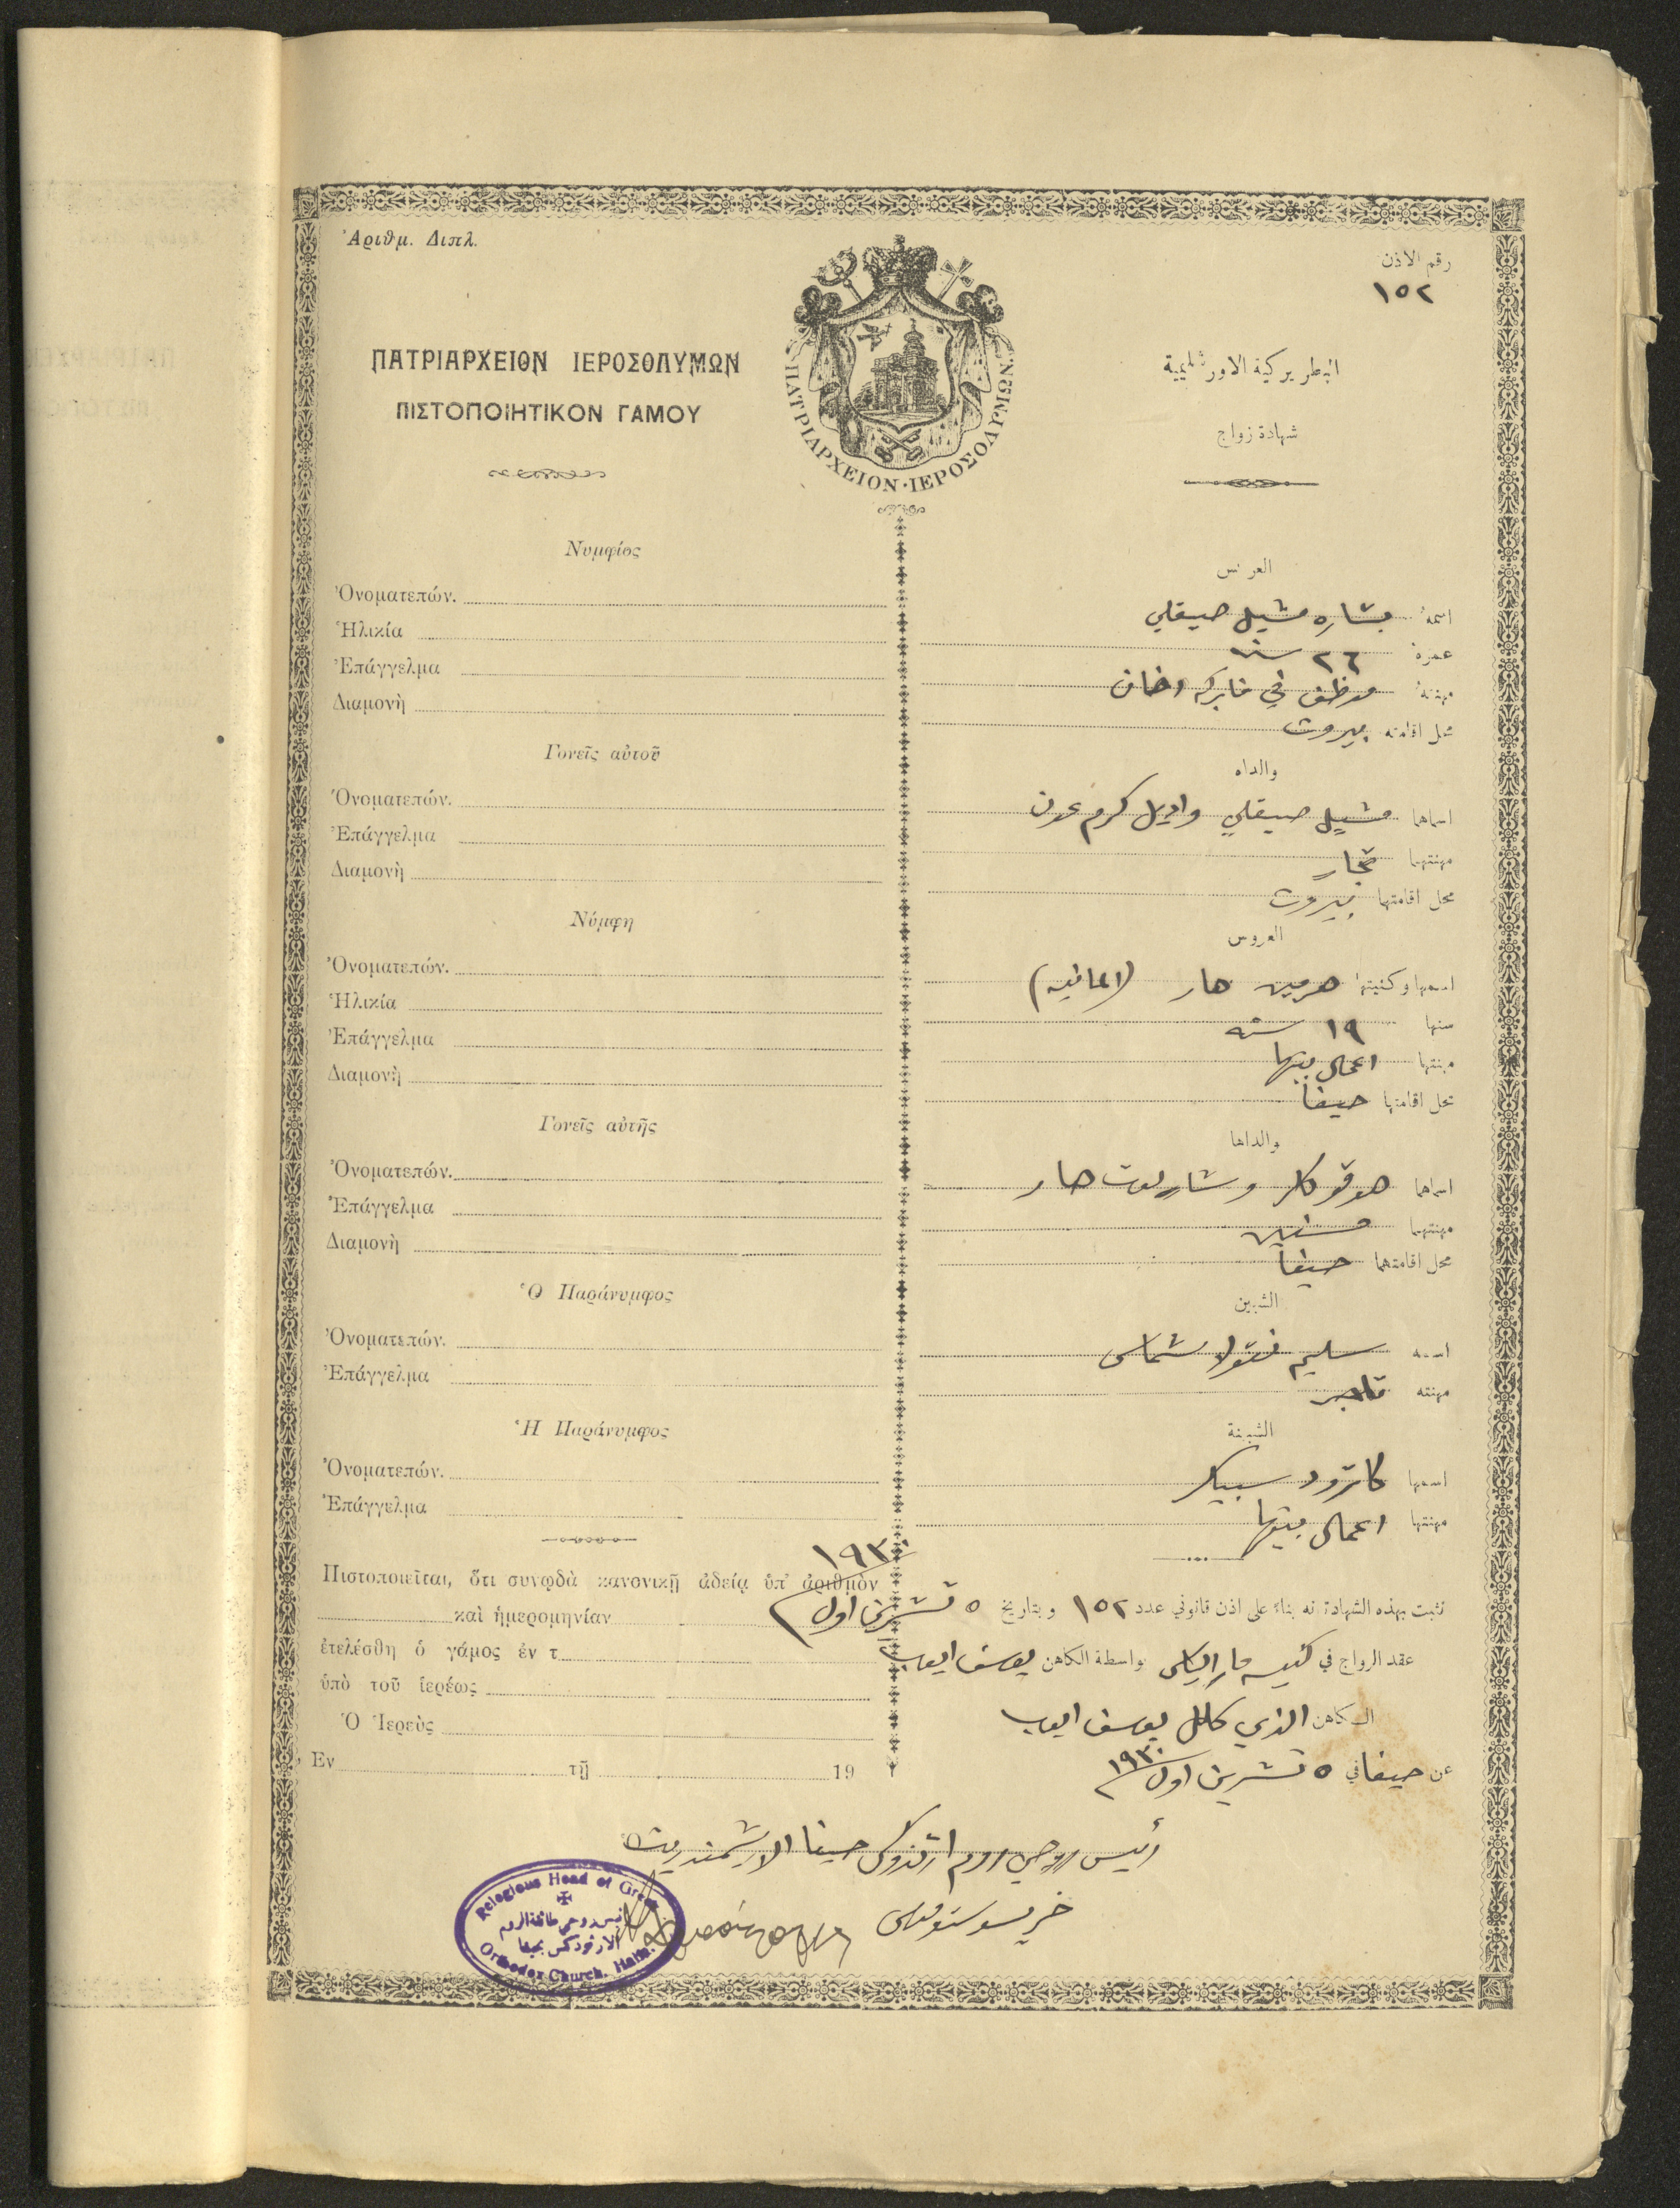 Ἀριθμ. Διπλ.
رقم الاذن
١٥٢
ΠΑΤΡΙΑΡΧΕΙΟΝ ΙΕΡΟΣΟΛΥΜΩΝ
ΠΙΣΤΟΠΟΙΗΤΙΚΟΝ ΓΑΜΟΥ
ΠΑΤΡΙΑΡΧΕΙΟΝ·ΙΕΡΟΣΟΛΥΜΩΝ
البطريركية الاورشليمية
شهادة زواج
Νυμφίος
Ὀνοματεπών.
Ἡλικία
Ἐπάγγελμα
Διαμονὴ
Γονεῖς αὐτοῦ
Ὀνοματεπών.
Ἐπάγγελμα
Διαμονὴ
Νύμφη
Ὀνοματεπών.
Ἡλικία
Ἐπάγγελμα
Διαμονὴ
Γονεῖς αὐτῆς
Ὀνοματεπών.
Ἐπάγγελμα
Διαμονὴ
Ὁ Παράνυμφος
Ὀνοματεπών.
Ἐπάγγελμα
Ἡ Παράνυμφος
Ὀνοματεπών.
Ἐπάγγελμα
Πιστοποιεῖται, ὅτι συνῳδὰ κανονικῇ ἀδείᾳ ὑπ' ἀριθμὸν
καὶ ἡμερομηνίαν
ἐτελέσθη ὁ γάμος ἐν τ
ὑπὸ τοῦ ἱερέως
Ὁ Ἱερεὺς
Ἐν τῇ 19
العريس
اسمه بشاره ميشيل صيقلي
عمره ٢٦ سنة
مهنته موظف في فابركه دخان
محل اقامته بيروت
والداه
اسماهما ميشيل صيقلي واديل كرم
مهنتهما تجار
محل اقامتهما بيروت
العروس
اسمها وكنيتها هرمين هار (المانيه)
سنها ١٩ سنه
مهنتها اعمال بيتها
محل اقامتها حيفا
والداها
اسماهما وشارلوت هار
مهنتهما
محل اقامتهما حيفا
الشبين
اسمه سليم نقولا شماس
مهنته تاجر
الشبينة
اسمها كاترود
مهنتها اعمال بيتها
تثبت بهذه الشهادة انه بناء على اذن قانوني عدد ١٥٢ وبتاريخ ٥ تشرين اول ١٩٣٠
عقد الزواج في كنيسة مار الياس بواسطة الكاهن يوسف ايوب
الكاهن الذي كلل يوسف ايوب
عن حيفا في ٥ تشرين اول ١٩٣٠
رئيس روحي روم ارثذوكس حيفا الارشمندريت
خريسوستموس
Relegious Head of Greek
رئيس روحي طائفة الروم
الارثوذكس بحيفا
Orthodox Church. Haifa.